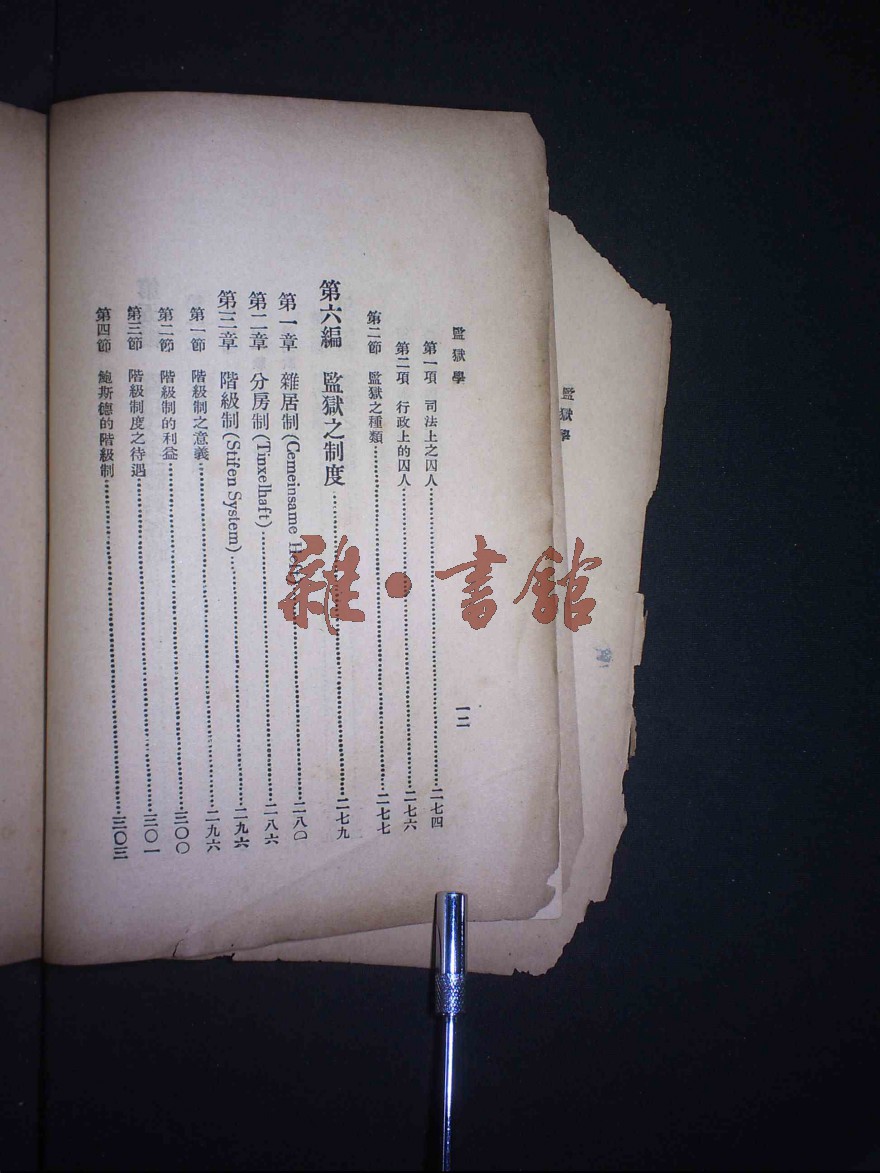 監獄學
第一項 司法上之囚人…………二七四
第二項 行政上的囚人…………二七六
第二節 監獄之種類…………二七七
第六編 監獄之制度…………二七九
第一章 雜居制(Cemeinsame …………二八〇
第二章 分房制(Tinxelhaft)…………二八六
第三章 階級制(Stifen System)…………二九六
第一節 階級制之意義…………二九六
第二節 階級制的利益…………三〇〇
第三節 階級制度之待遇…………三〇一
第四節 鮑斯德的階級制…………三〇三
一二
監獄學
雜·書館